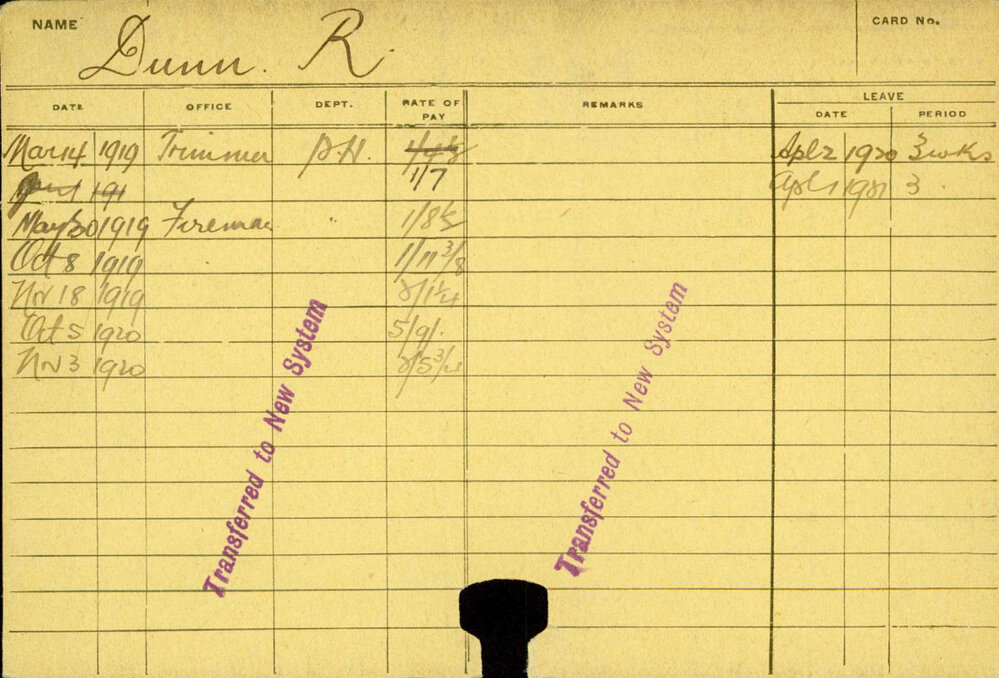 NAME Dunn. R. CARD No.
DATE OFFICE DEPT. RATE OF PAY REMARKS LEAVE
DATE PERIOD
Mar 14 1919 Trimmer P.H. 1/4½ Apl 2 1920 3 wks
191 1/7 Apl 1 1921 3
May 20 1919 Fireman " 1/8½
Oct 8 1919 1/11 3/8
Nv 18 1919 2/1¼
Oct 5 1920 5/9/.
Nv 3 1920 2/5¾
Transferred to New System
Transferred to New System